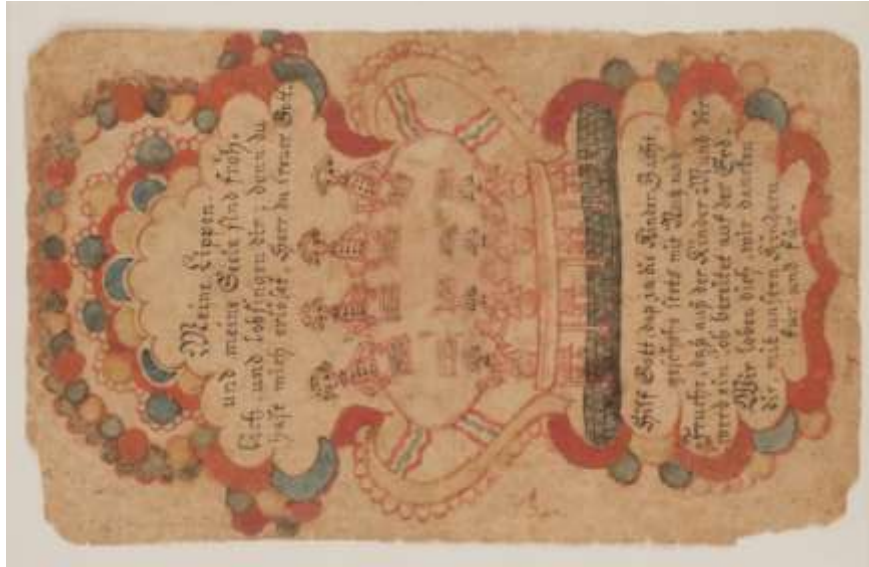 Meine Lippen.
und meine Seele sind fröh-
lich und lobsingen dir, denn du
hast mich erlöset, Herr du treuer Gott.
Hilf Gott daß ja die Kinder Zucht,
geschehe stets mit Nuz und
Frucht, daß auß der Kinder Mund dir
werd ein lob bereitet auf der Erd.
Wir loben dich, wir dancken
dir, mit unsern Kindern
für und für.